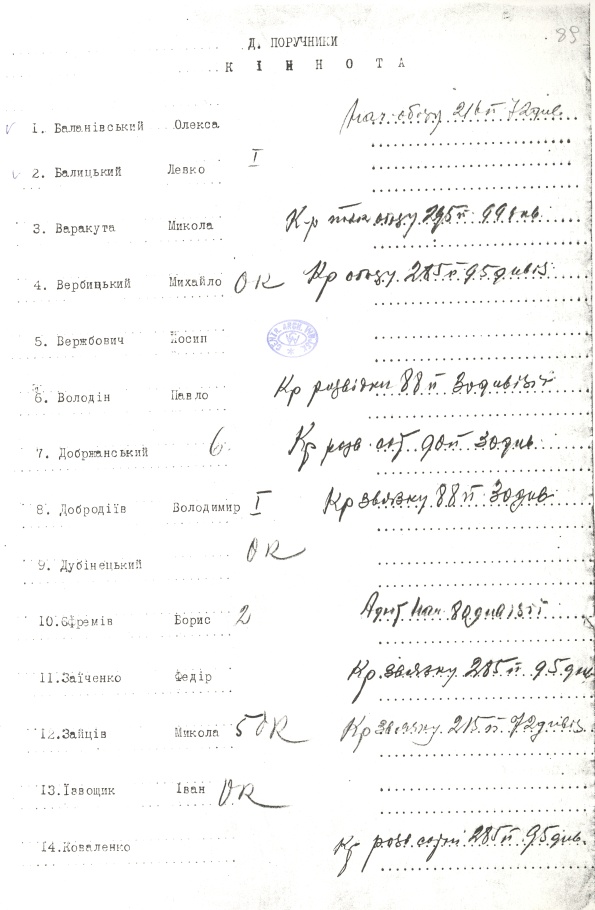 89
Д. ПОРУЧНИКИ
К І Н Н О Т А
1. Баланівський Олекса Нач. обозу 216 п 72 див.
2. Балицький Левко I
3. Варакута Микола К-р обозу 295 п 99 див.
4. Вербицький Михайло ОК Кр обозу 285 п 95 дивіз
5. Вержбович Йосип
6. Володін Павло Кр розвідки 88 п 30 дивізії
7. Добржанський 6 Кр розв. сот 90 п 30 див.
8. Добродіїв Володимир I Кр звязку 88 п 30 див
9. Дубінецький ОК
10.Єфремів Борис 2 Адют Нач. 8 дивізії
11.Заїченко Федір Кр. звязку 285 п 95 див
12.Зайців Микола 5 ОК Кр звязку 215 п 72 дивіз.
13.Ізвощик Іван ОК
14.Коваленко Кр розв. сотні 285 п 95 див.